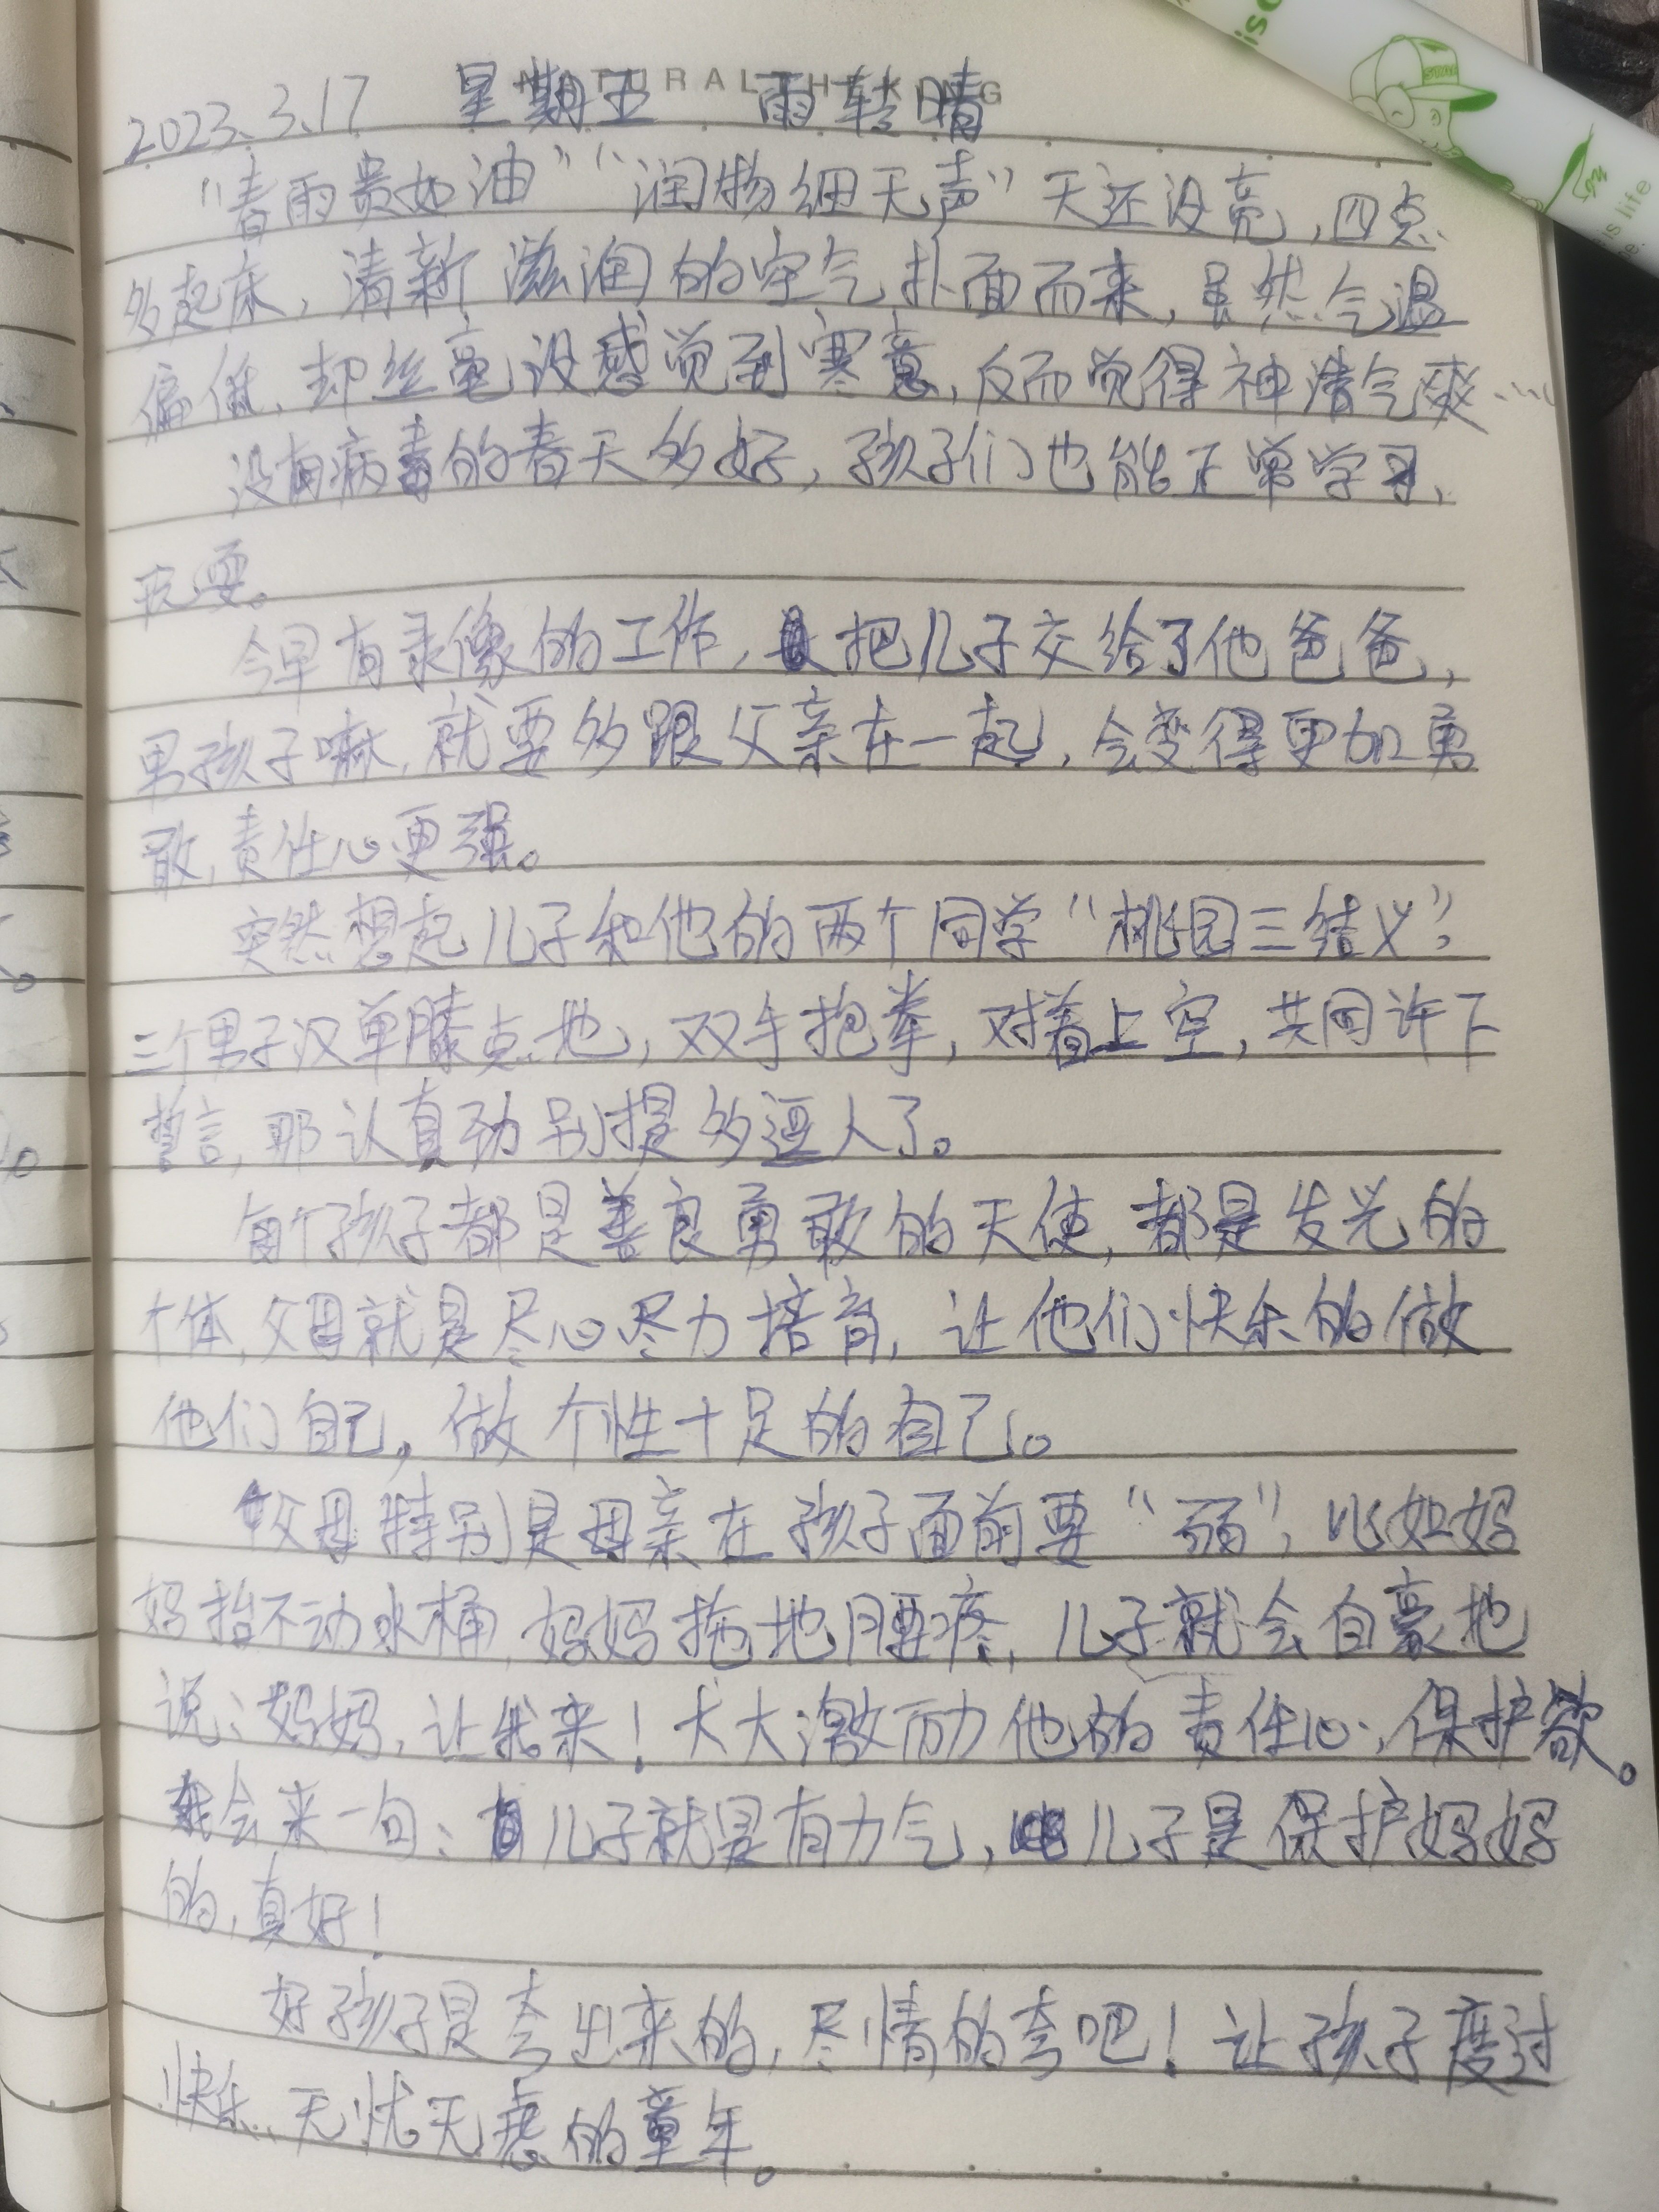 NATURAL THKNG
2023.3.17 星期五 雨转晴
"春雨贵如油""润物细无声"天还没亮,四点
多起床,清新滋润的空气扑面而来,虽然气温
偏低,却丝毫没感觉到寒意,反而觉得神清气爽……
没有病毒的春天多好,孩子们也能正常学习、
玩耍。
今早有录像的工作,把儿子交给了他爸爸,
男孩子嘛,就要多跟父亲在一起,会变得更加勇
敢,责任心更强。
突然想起儿子和他的两个同学"桃园三结义",
三个男子汉单膝点地,双手抱拳,对着上空,共同许下
誓言,那认真劲别提多逗人了。
每个孩子都是善良勇敢的天使,都是发光的
个体,父母就是尽心尽力培育,让他们快乐的做
他们自己,做个性十足的自己。
父母特别是母亲在孩子面前要"弱",比如妈
妈抬不动水桶,妈妈拖地腰疼,儿子就会自豪地
说:妈妈,让我来!大大激励他的责任心,保护欲。
我会来一句:儿子就是有力气,儿子是保护妈妈
的,真好!
好孩子是夸出来的,尽情的夸吧!让孩子度过
快乐、无忧无虑的童年。
is life